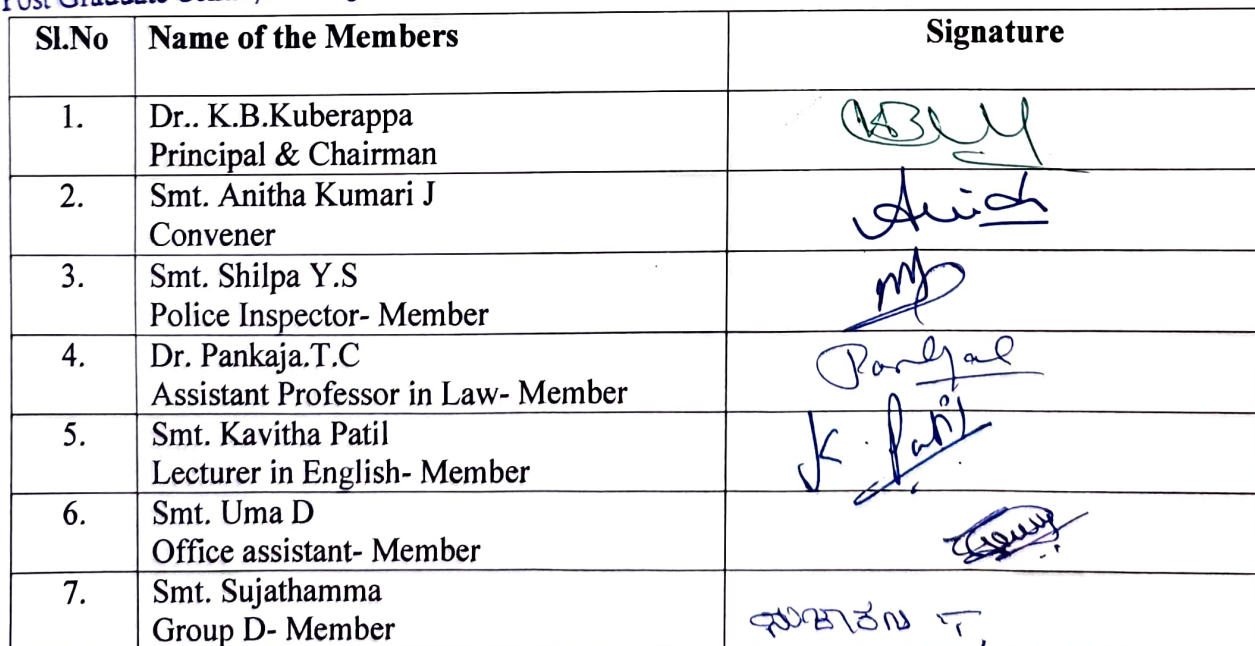 Post Graduate
Sl.No Name of the Members Signature
1. Dr.. K.B.Kuberappa
Principal & Chairman
2. Smt. Anitha Kumari J
Convener
3. Smt. Shilpa Y.S
Police Inspector- Member
4. Dr. Pankaja.T.C
Assistant Professor in Law- Member
5. Smt. Kavitha Patil K. Patil
Lecturer in English- Member
6. Smt. Uma D
Office assistant- Member
7. Smt. Sujathamma
Group D- Member